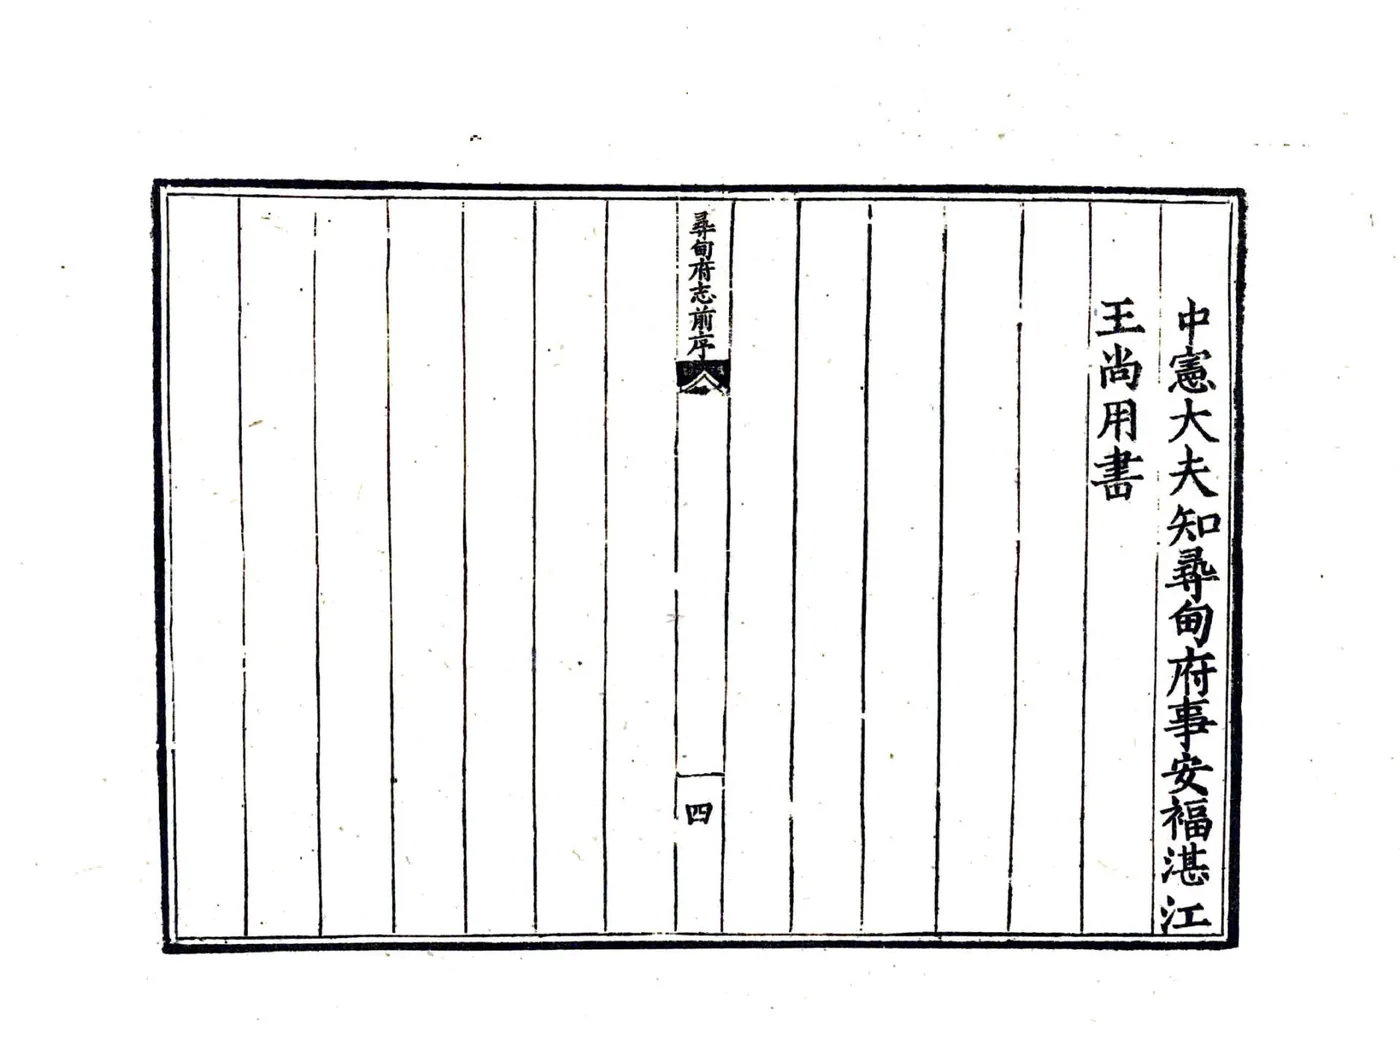 中憲大夫知尋甸府事安福湛江
王尚用書
尋甸府志前序
四